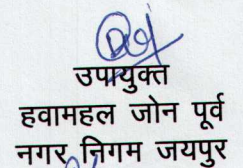 उपायुक्त
हवामहल जोन पूर्व
नगर निगम जयपुर